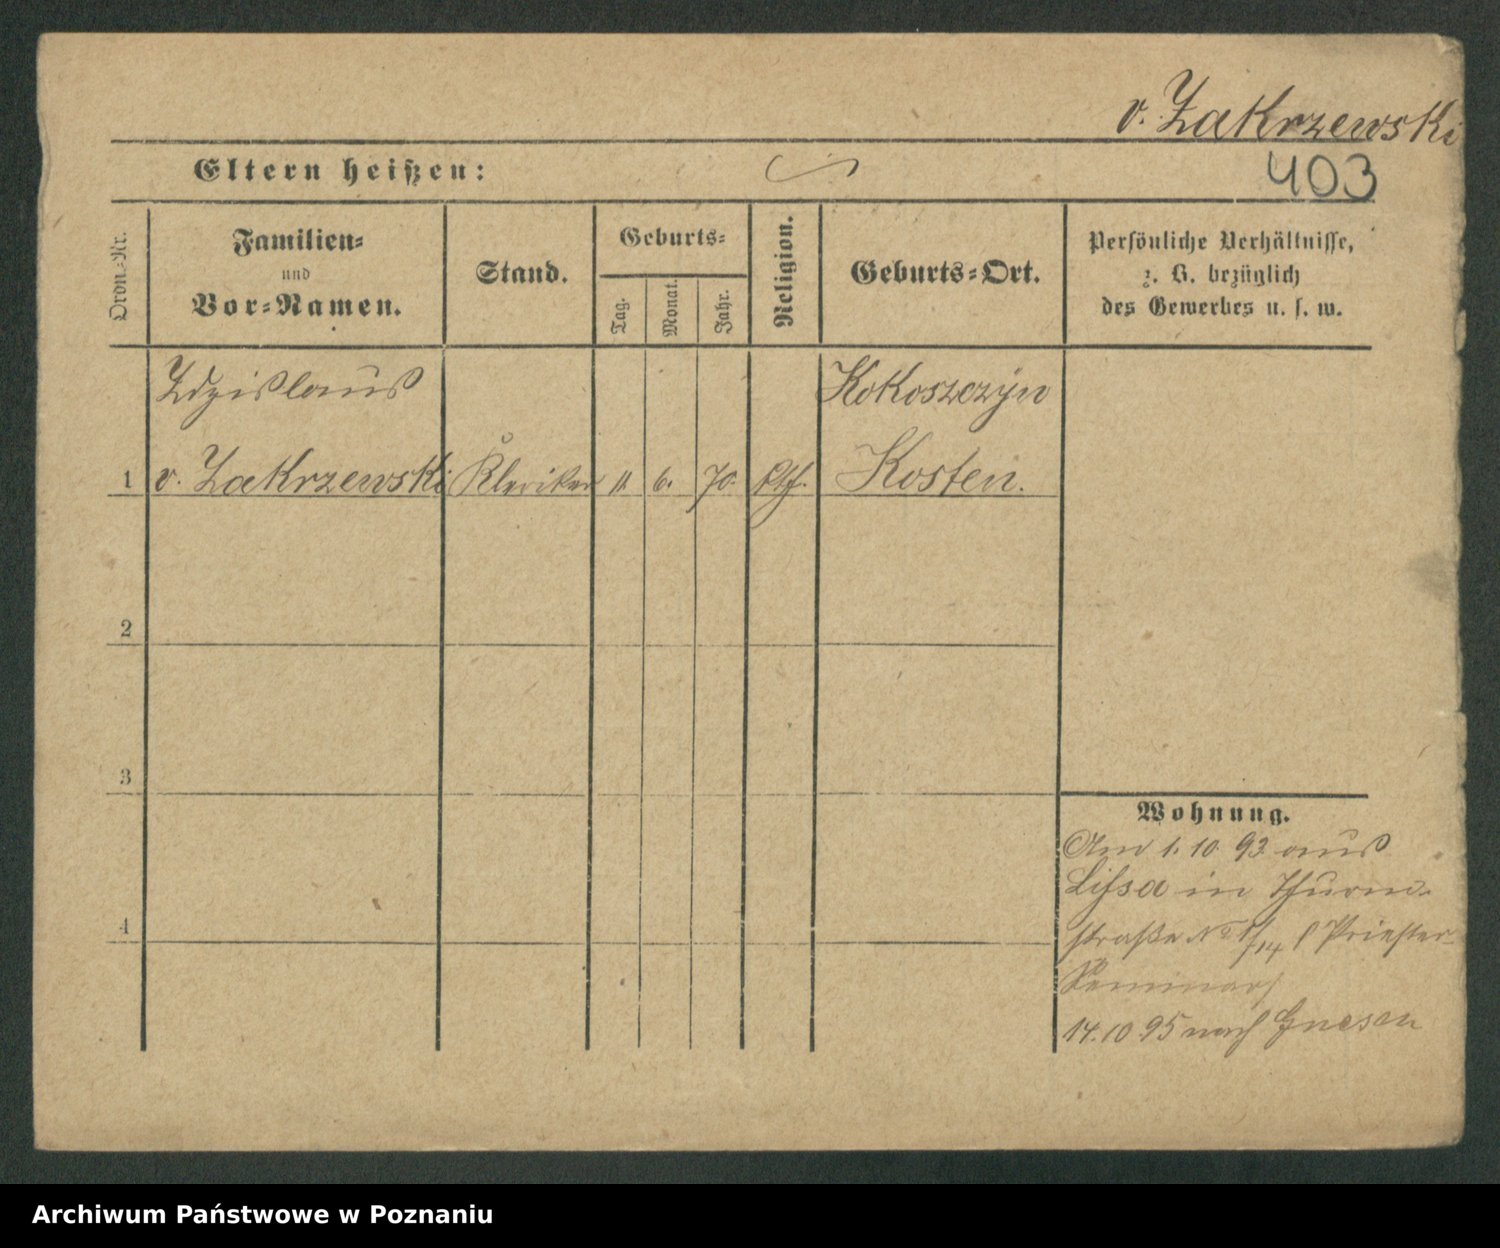 v. Zakrzewski
Eltern heißen:
403
Ordn.-Nr.
Familien-
und
Vor-Namen.
Stand.
Geburts-
Tag.
Monat.
Jahr.
Religion.
Geburts-Ort.
Persönliche Verhältnisse,
z. B. bezüglich
des Gewerbes u. s. w.
Zdzislaus
Kokoszczyn
1 v. Zakrzewski Kleriker 11. 6. 70. kth. Kosten.
2
3
4
Wohnung.
Am 1. 10 93 aus
Lissa in Thurm-
straße No 11/14 Priester-
Seminar
14. 10 95 nach Gnesen
Archiwum Państwowe w Poznaniu